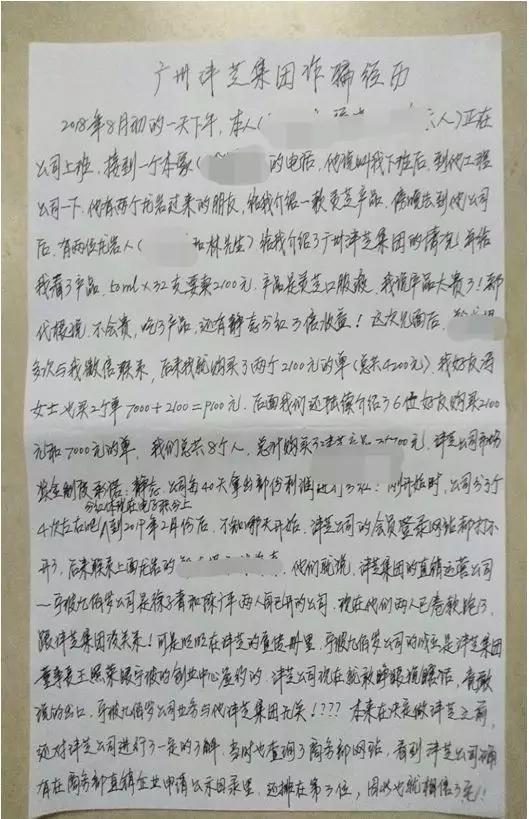 广州津芝集团诈骗经历
2018年8月初的一天下午，本人（ 人）正在
公司上班，接到一个本家（ 的电话，他说叫我下班后，到他工程
公司一下，他有两个龙岩过来的朋友，给我介绍一款灵芝产品，傍晚去到他公司
后，有两位龙岩人（ 和林先生）给我介绍了广州津芝集团的情况，并给
我看了产品，50ml×32支要卖2100元，产品是灵芝口服液，我说产品太贵了！郭
代根说，不会贵，吃了产品，还有静态分红3倍收益！这次见面后，
多次与我微信联系，后来我就购买了两个2100元的单（总共4200元），我好友
女士也买2个单7000+2100=9100元，后面我们还陆续介绍了6位好友购买2100
元和7000元的单，我们总共8个人，总计购买 元，津芝公司市场
奖金制度承诺：静态，公司每40天拿出部份利润进行分红！刚开始时，公司分了
4次左右吧，到2019年2月份后，不知哪天开始，津芝公司的会员登录网站都打不
分红体现在电子积分上
开了，后来联系上面龙岩的 ，他们就说，津芝集团的直销运营公司
—宁波九佰岁公司是 和陈广年两人自己开的公司，现在他们两人已卷款跑了，
跟津芝集团没关系！可是明明在津芝的宣传册里，宁波九佰岁公司的成立是津芝集团
董事长王熙荣跟宁波的创业中心签约的，津芝公司现在就敢睁眼说瞎话，竟敢
说的出口，宁波九佰岁公司业务与他津芝集团无关！？？？本来在决定做津芝之前，
还对津芝公司进行了一定的了解，当时也查询了商务部网站，看到津芝公司确
有在商务部直销企业申请公示目录里，还排在第3位，因此也就相信了